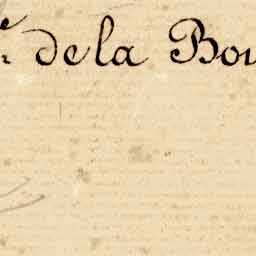 de la Bou